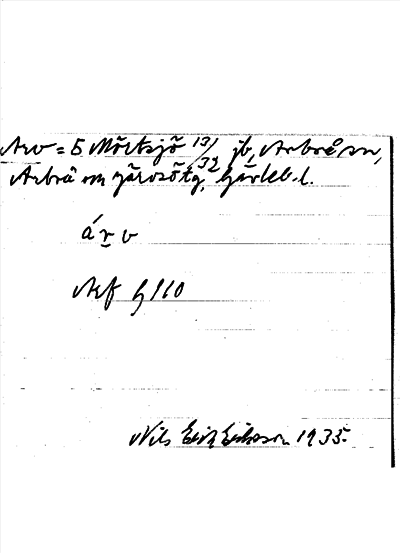 Arv = 5 Mörtsjö 13/32 jb, Arbrå sn,
Arbrå om Järvsö tg, Gävleb. l.
árv
Akf G 110
Nils Erik Eriksson 1935.